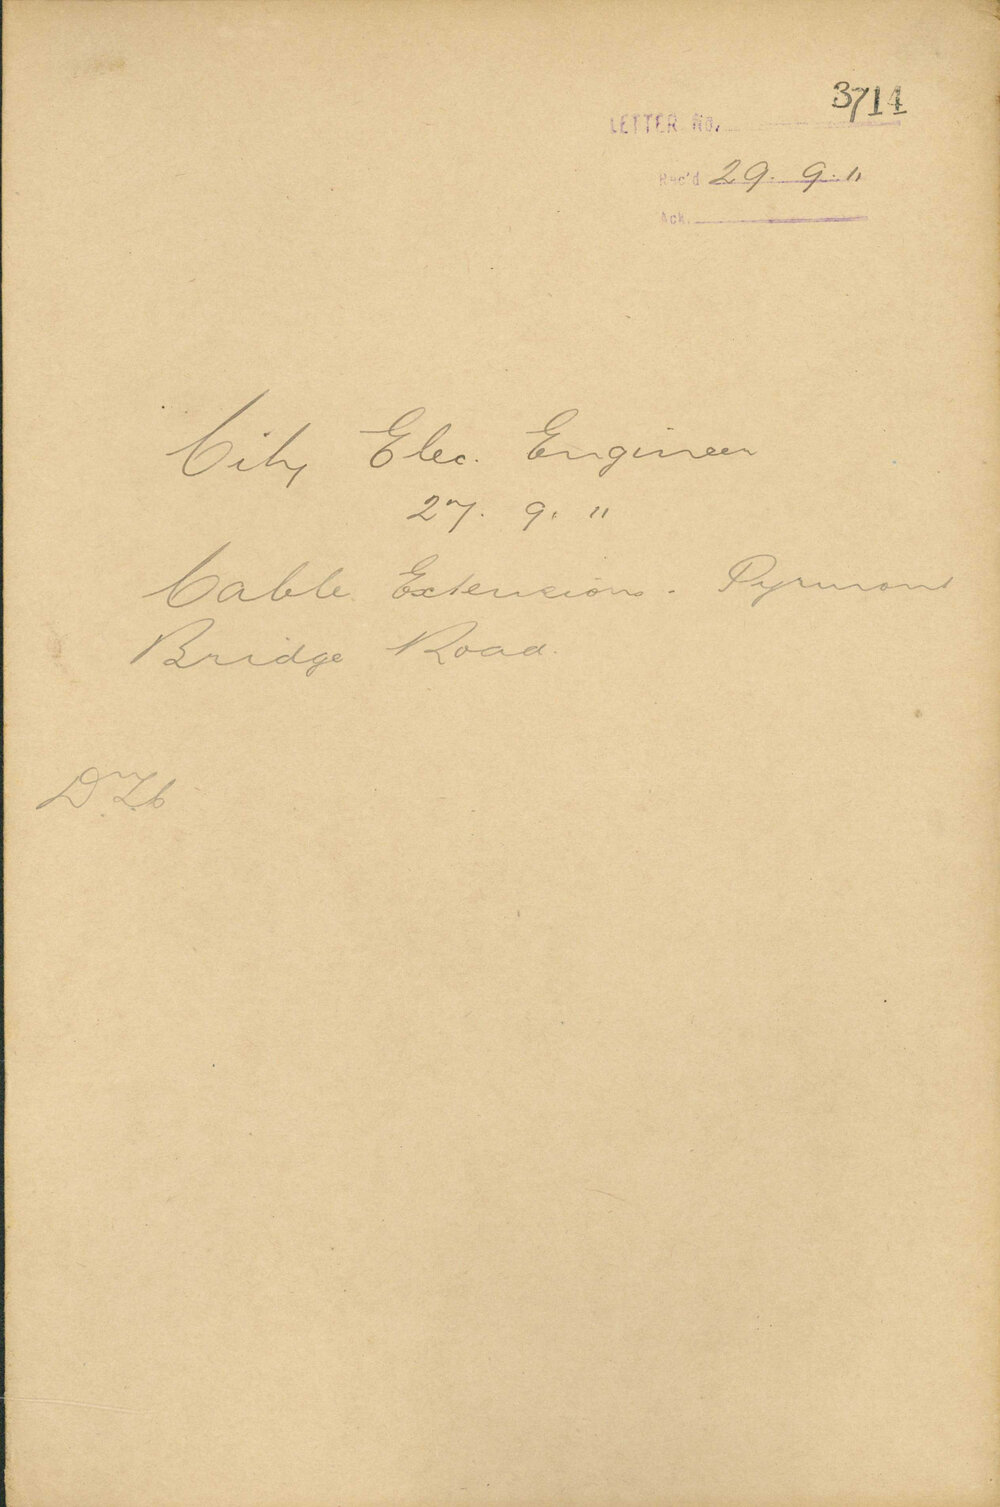 3714
LETTER No.
Rec'd 29. 9. 11
Ack.
City Elec. Engineer
27. 9. 11
Cable Extensions. Pyrmont
Bridge Road.